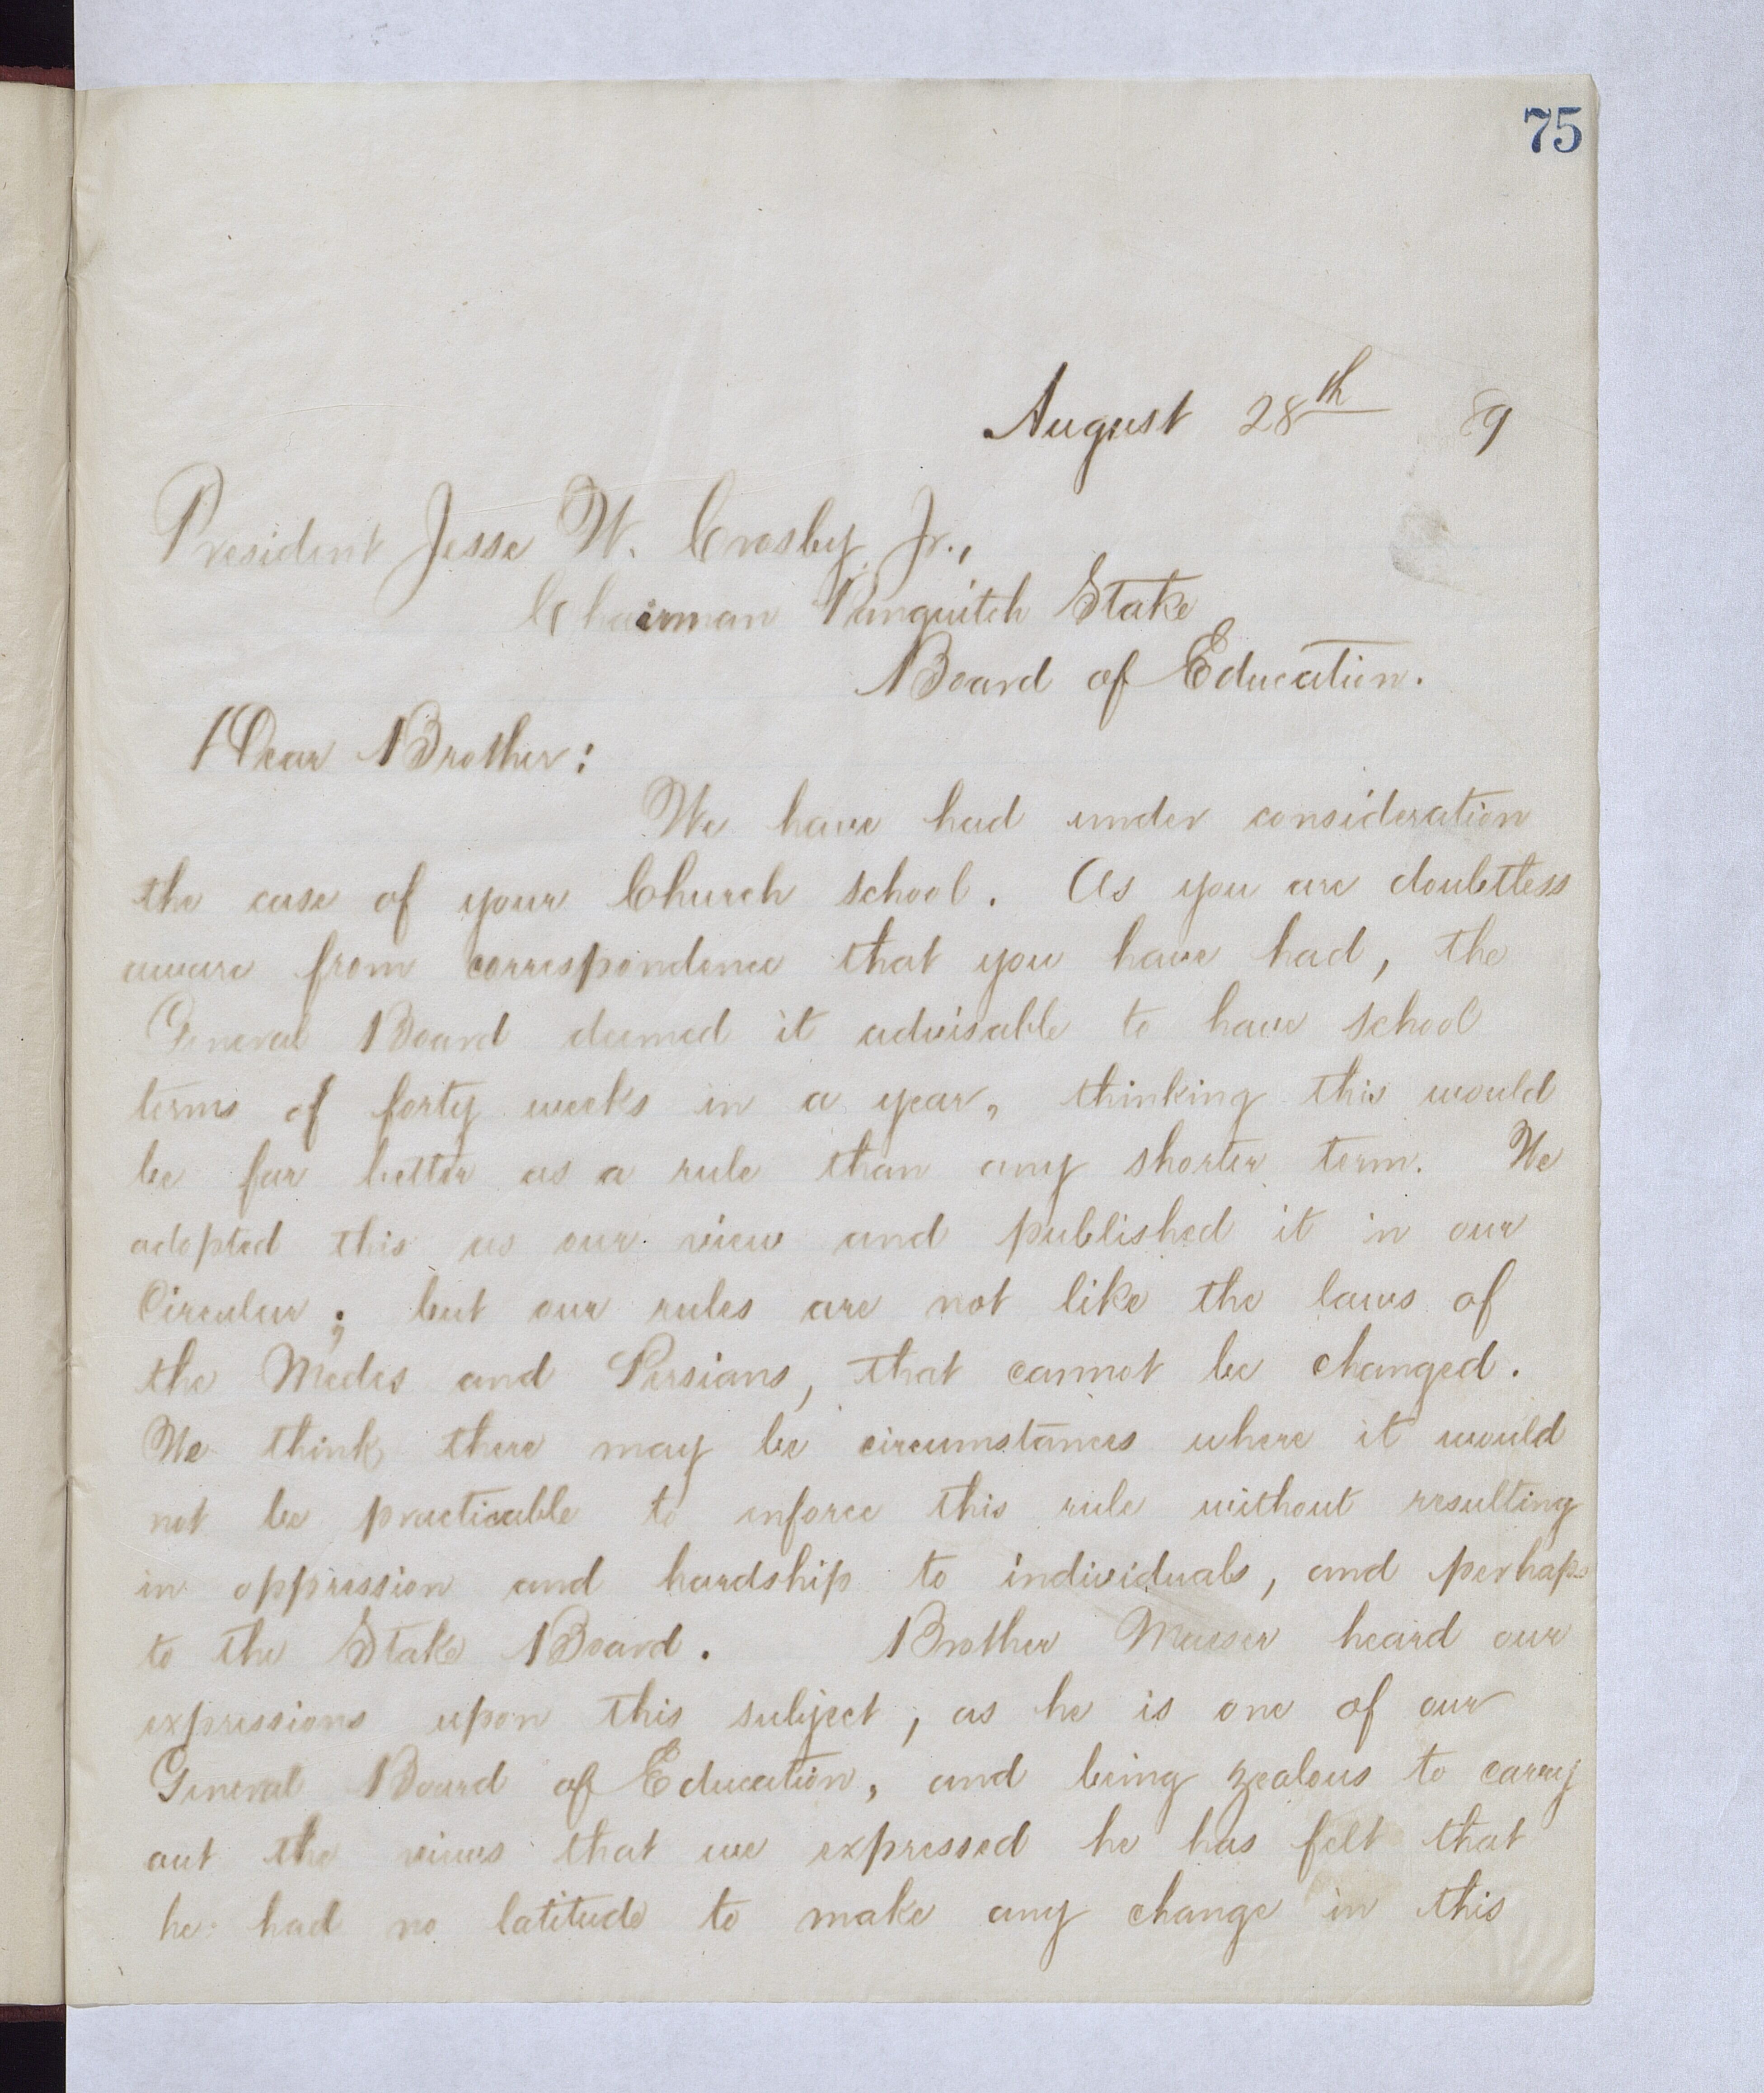 75
August 28th 89
President Jesse W. Crosby Jr.,
Chairman Panguitch Stake
Board of Education.
Dear Brother:
We have had under consideration
the case of your Church school. As you are doubtless
aware from correspondence that you have had, the
General Board deemed it advisable to have school
terms of forty weeks in a year, thinking this would
be far better as a rule than any shorter term. We
adopted this as our view and published it in our
Circular; but our rules are not like the laws of
the Medes and Persians, that cannot be changed.
We think there may be circumstances where it would
not be practicable to enforce this rule without resulting
in oppression and hardship to individuals, and perhaps
to the Stake Board. Brother Maeser heard our
expressions upon this subject, as he is one of our
General Board of Education, and being zealous to carry
out the views that we expressed he has felt that
he had no latitude to make any change in this